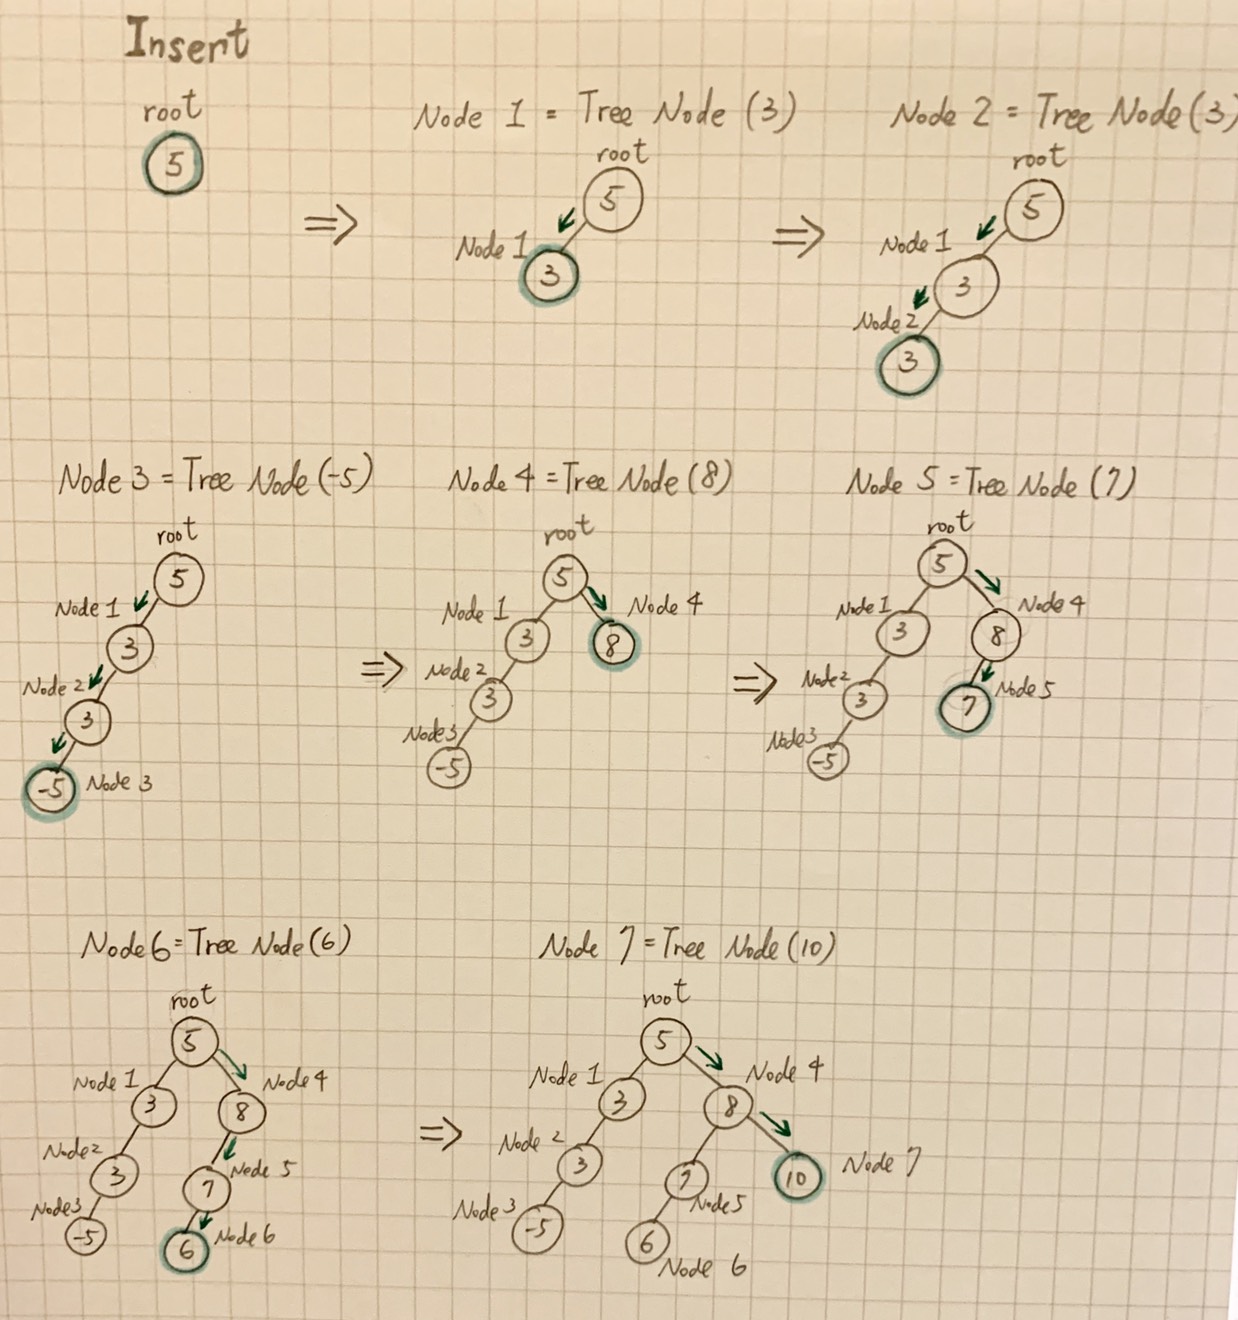 Insert
root
5
⇒
Node 1 = Tree Node (3)
root
5
Node 1
3
⇒
Node 2 = Tree Node (3)
root
5
Node 1
3
Node 2
3
Node 3 = Tree Node (-5)
root
5
Node 1
3
Node 2
3
-5 Node 3
⇒
Node 4 = Tree Node (8)
root
5
Node 1 Node 4
3 8
Node 2
3
Node 3
-5
⇒
Node 5 = Tree Node (7)
root
5
Node 1 Node 4
3 8
Node 2 Node 5
3 7
Node 3
-5
Node 6 = Tree Node (6)
root
5
Node 1 Node 4
3 8
Node 2 Node 5
3 7
Node 3 Node 6
-5 6
⇒
Node 7 = Tree Node (10)
root
5
Node 1 Node 4
3 8
Node 2 Node 7
3 7 10
Node 3 Node 5
-5 6
Node 6